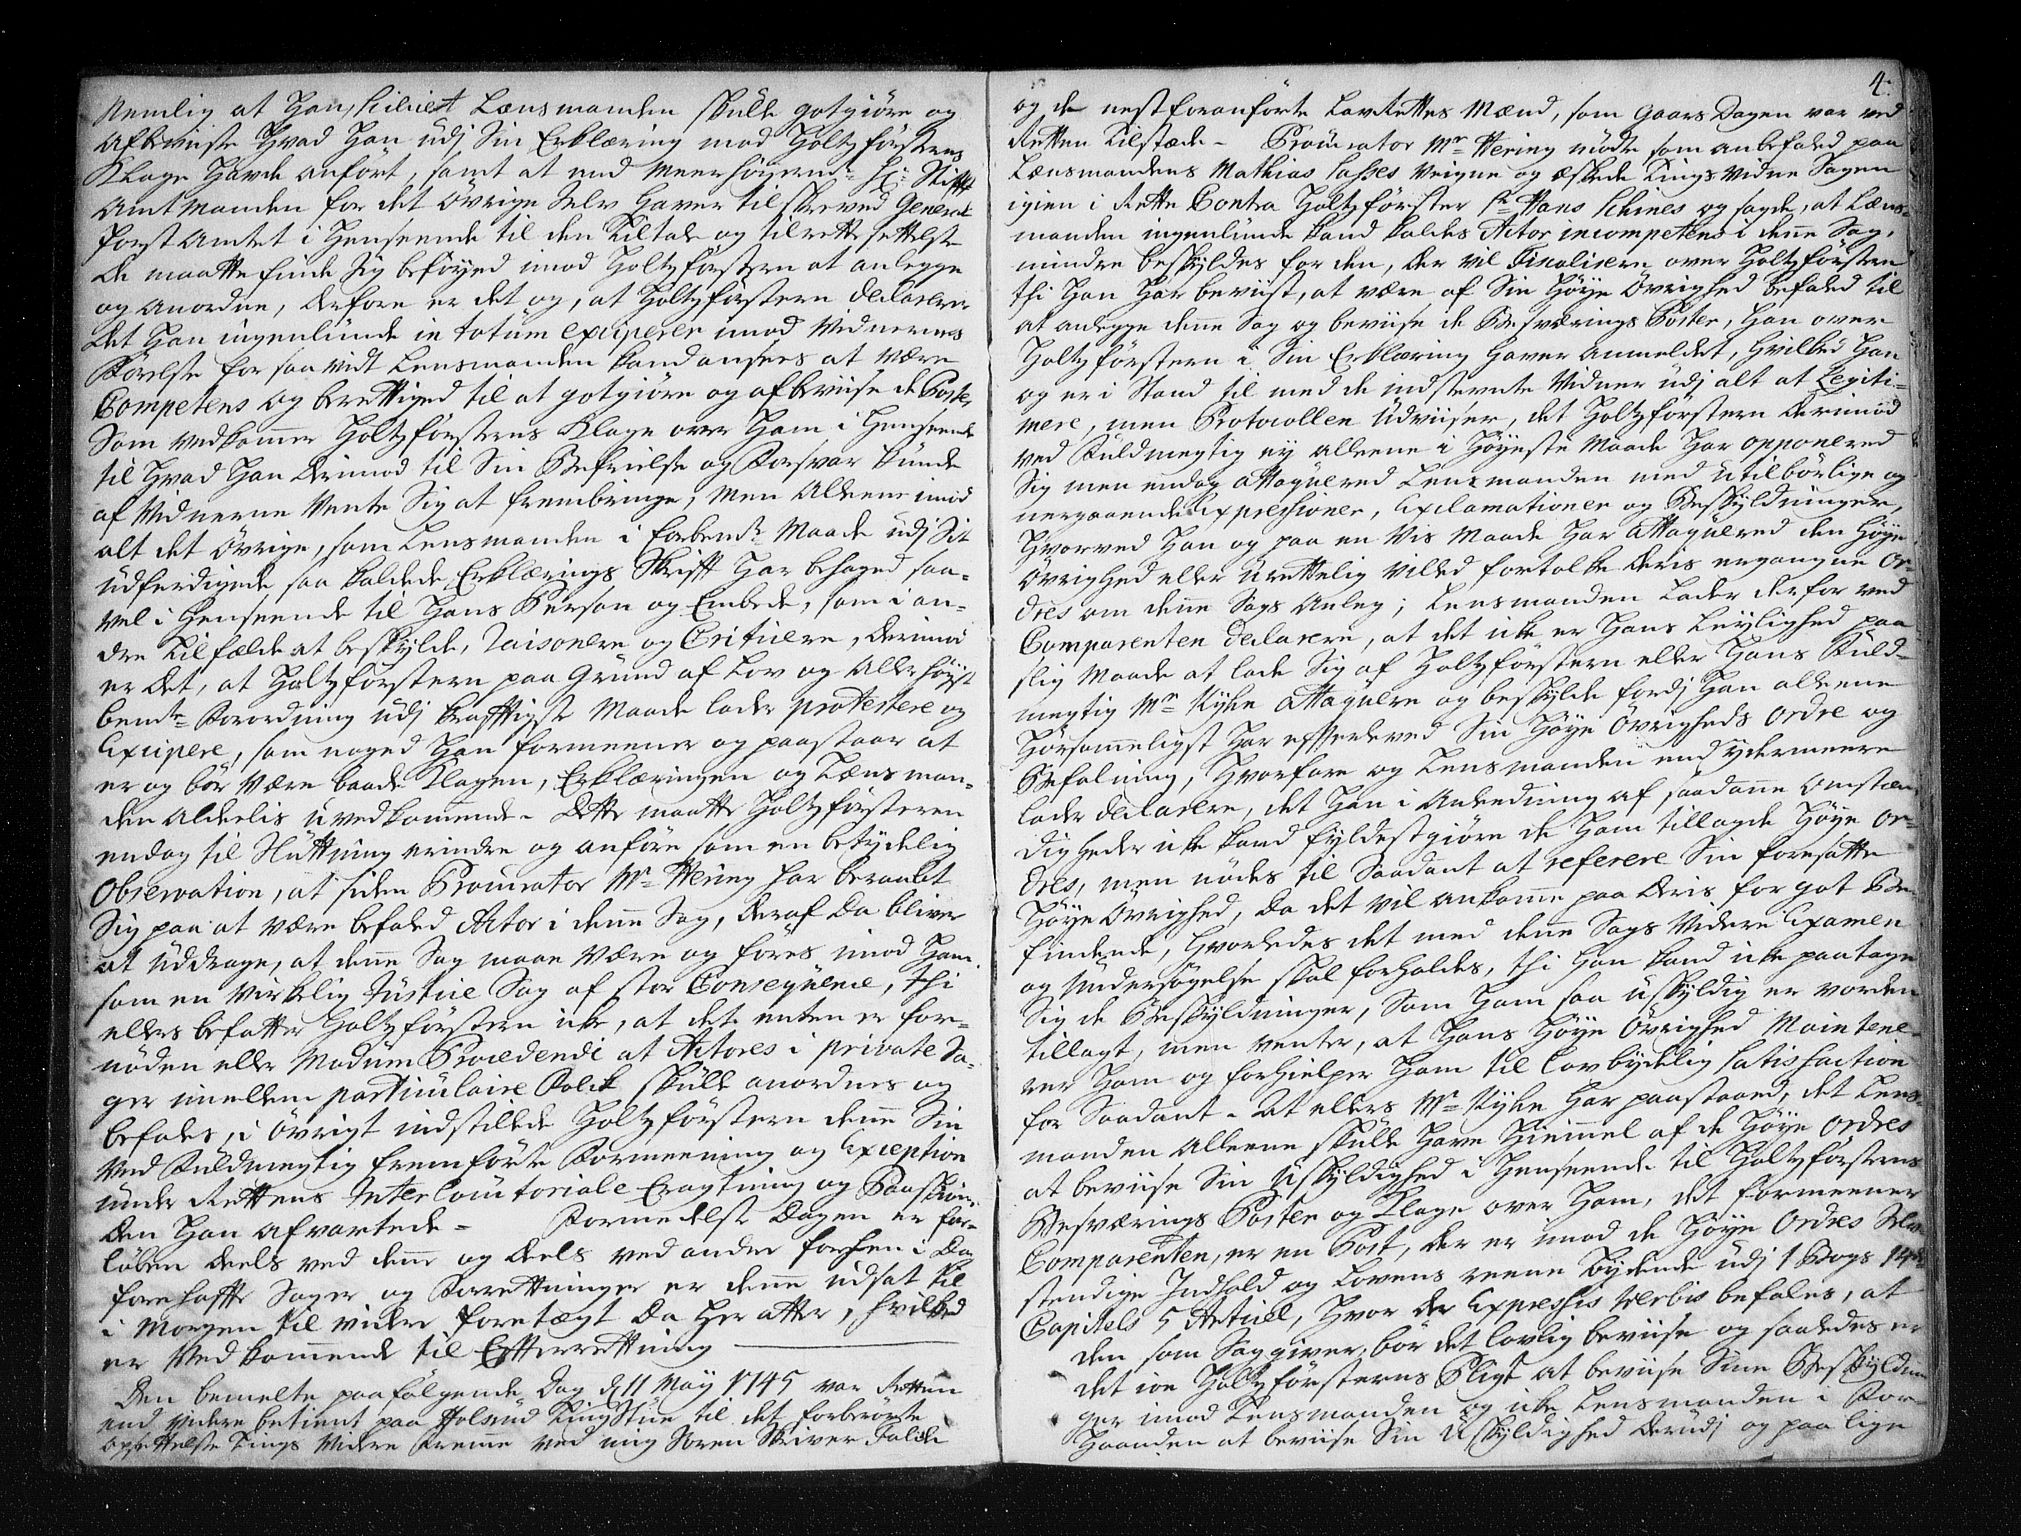 Nemlig at Han, scilicet Lænsmanden skulle gotgiøre og
Afbeviiste Hvad Han udj Sin Erklæring mod Holtzförsterens
Klage Havde anført, samt at end Meerhøiernd: Hr: Stifft
Amtmanden for det Øvrige Selv Haver tilskreved General
Forst Amtet i Henseende til den Tiltale og tilrettesettelse
De maatte finde Sig beføyed imod Holtzförstern at anlegge
og anordne, derfore er det og, at Holtzförstern declarerer
Det Han ingenlunde in totum exciperer imod Vidnernes
Førelse for saa vidt Lensmanden kand ansees at være
Competens og berettiged til at gotgiøre og afbeviise de Poster
Som vedkommer Holtzförsterens Klage over Ham i Henseende
til Hvad Han derimod til Sin Befrielse og Forsvar kunde
af Vidnerne Vente Sig at frembringe, Men Alleene imod
alt det øvrige, som Lensmanden i forbente Maade udj Sit
udferdigede saa kaldede Erklærings Skrifft Har behaged saa-
vel i Henseende til Hans Person og Embede, som i an-
dre Tilfælde at beskylde, raisonere og Criticere, derimod
er det, at Holtzförstern paa Grund af Lov og Allerhøyst
bemte Forordning udj krafftigste Maade lader protestere og
Excipere, som noged Han formeener og paastaar at
er og bør være baade Klagen, Erklæringen og Lænsman-
den Aldelis uvedkommende. Dette maatte Holtzförsteren
endog til Sluttning erindre og anføre som en betydelig
Observation, at siden Procurator Mr Hering har beraabt
Sig paa at være befaled Actor i denne Sag, deraf da bliver
at uddrage, at denne Sag maae være og føres imod Ham
som en virkelig Justice Sag af stor Conseqvence, thi
ellers befatter Holtzförstern icke, at det enten er for-
nøden eller Modum Procedendi at Actores i private Sa-
ger imellem particulaire Folck skulle anordnes og
befales, i øvrigt indstillede Holtzförstern denne Sin
Ved Fuldmegtig fremførte Formeening og Exception
under Rettens Interlocutoriale Eragtning og Paaskiøn-
den Han afvartede. Formedelst Dagen er for-
løben deels ved denne og deels ved andre forhen i Dag
forehaffte Sager og Forrettninger er denne udsat til
i Morgen til videre foretægt da Her atter, Hvilked
er Vedkommende til Effterrettning
Den bemelte paafølgende Dag d 11 May 1745 var Retten
end videre betient paa Holsrud TingStue til det forberørte
opsettelse Tings Vidne Fremme ved mig Soren Skriver Falch
4.
og de nestforanførte Lavrettes Mænd, som Gaars Dagen var ved
Retten tilstæde. Procurator Mr Hering møtte som anbefaled paa
Lænsmandens Mathias Sasses Veigne og eskede Tings Vidne Sagen
igien i Rette Contra Holtzförster Sr Hans Schines og sagde, at Læns-
manden ingenlunde kand kaldes Actor incompetens i denne Sag,
mindre beskyldes for den, der vil Fiscalisere over Holtzförstern
thi Han Har beviist, at være af Sin Høye Øvrighed befaled til
at anlegge denne Sag og beviise de Besværings Poster, Han over
Holtzförstern i Sin Erklæring Haver Anmeldet, Hvilked Han
og er i Stand til med de indstevnte Vidner udj alt at Legiti-
mere, men Protocollen Udviiser, det Holtzförstern derimod
ved Fuldmegtig ey alleene i Høyeste Maade Har opponered
Sig men endog attaqvered Lensmanden med utilbørlige og
nergaaende Expressioner, Exclamationer og Beskyldninger,
Hvorved Han og paa en vis Maade Har attaqvered den Høye
Øvrighed eller urettelig villed fortolke deris ergangne Or-
dres om denne Sags Anleg; Lensmanden Lader derfor ved
Comparenten declarere, at det icke er Hans Leylighed paa
slig Maade at lade Sig af Holtzförstern eller Hans Fuld-
megtig Mr Kyhn attaqvere og beskylde fordj Han alleene
Hørsommeligst Har effterleved Sin Høye Øvrigheds Ordre og
Befalning, Hvorfore og Lensmanden end ydermeere
lader declarere, det Han i Anledning af saadanne Omstæn-
digheder icke kand fyldestgiøre de Ham tillagde Høye Or-
dres, men nødes til Saadant at referere Sin foresatte
Høye Øvrighed, da det vil ankomme paa deris for got Be-
findende, Hvorledes det med denne Sags Videre Examen
og Undersøgelse skal forholdes, thi Han kand icke paatage
Sig de Beskyldninger, Som Ham saa uskyldig er vorden
tillagt, men venter, at Hans Høye Øvrighed Maintene-
rer Ham og forhielper Ham til lovbydelig Satisfaction
for Saadant. At ellers Mr Kyhn Har paastaaed, det Lens-
manden Alleene skulle Have Hiemmel af de Høye Ordres
at beviise Sin uskyldighed i Henseende til Holtzförsterens
Besværings Poster og Klage over Ham, det formeener
Comparenten, er en Post, der er imod de Høye Ordres Selv-
stendige Indhold og Lovens reene Bydende udj 1 Bogs 14de
Capitels 5 Articul, Hvor der Expressis Verbis befales, at
den som Sag giver, bør det lovlig beviise og saaledes er
det ioe Holtzförsterens Pligt at beviise Sine Beskyldnin-
ger imod Lensmanden og icke Lensmanden i For-
Haanden at beviise Sin uskyldighed derudj og paa lige